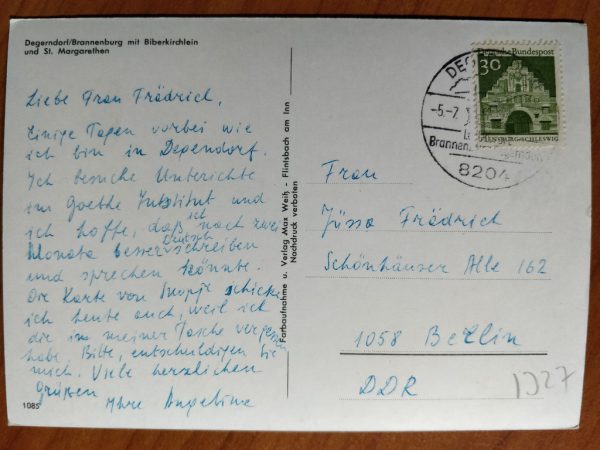 Degerndorf/Brannenburg mit Biberkirchlein
und St. Margarethen
Liebe Frau Frädrich,
Einige Tagen vorbei wie
ich bin in Dependorf.
Ich besuche Unterichte
im Goethe Institut und
ich hoffe, daß ich nach zwei
Monata besser Deutsch schreiben
und sprechen könnte.
Die Karte von Skopje schicke
ich heute auch, weil ich
die in meiner Tasche vergessen
habe. Bitte, entschuldigen Sie
mich. Viele herzlichen
Grüßen
Ihre Angelina
1085
Farbaufnahme u. Verlag Max Weiß - Flintsbach am Inn
Nachdruck verboten
DEG
-5.-7.
Brannen
8204
Deutsche Bundespost
30
FLENSBURG/SCHLESWIG
Frau
Jüssa Frädrich
Schönhäuser Alle 162
1058 Berlin
DDR
1J27